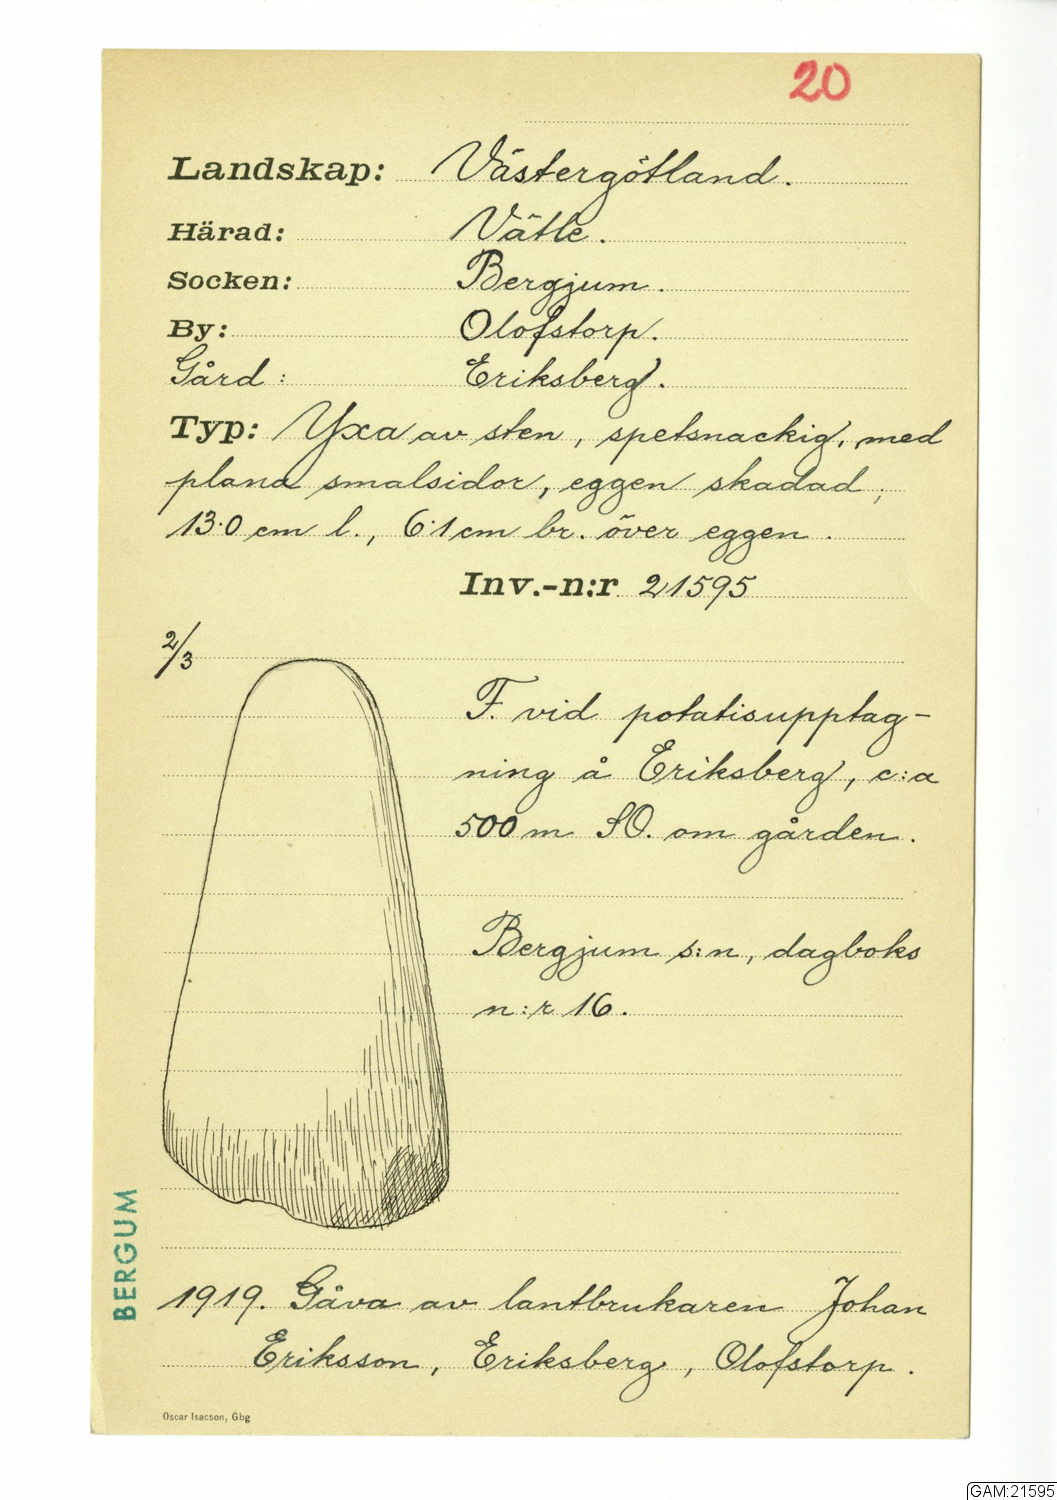 20
Landskap: Västergötland.
Härad: Vätle.
Socken: Bergjum.
By: Olofstorp.
Gård: Eriksberg.
Typ: Yxa av sten, spetsnackig, med
plana smalsidor, eggen skadad,
13·0 cm l., 6·1 cm br. över eggen.
Inv.-n:r 21595
2/3
F. vid potatisupptag-
ning å Eriksberg, c:a
500 m SO. om gården.
Bergjum s:n, dagboks
n:r 16.
BERGUM
1919. Gåva av lantbrukaren Johan
Eriksson, Eriksberg, Olofstorp.
Oscar Isacson, Gbg
GAM:21595